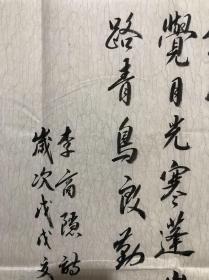 覺月光寒蓬
路青鳥殷勤
李商隱詩
歲次戊戌